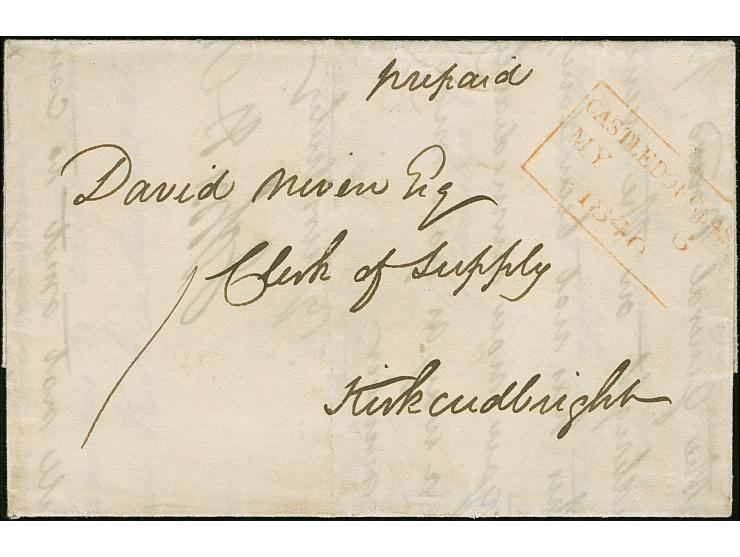 prepaid
CASTLEDOUGLAS
MY 8
1840
David Niven Esq
Clerk of Supply
Kirkcudbright
1